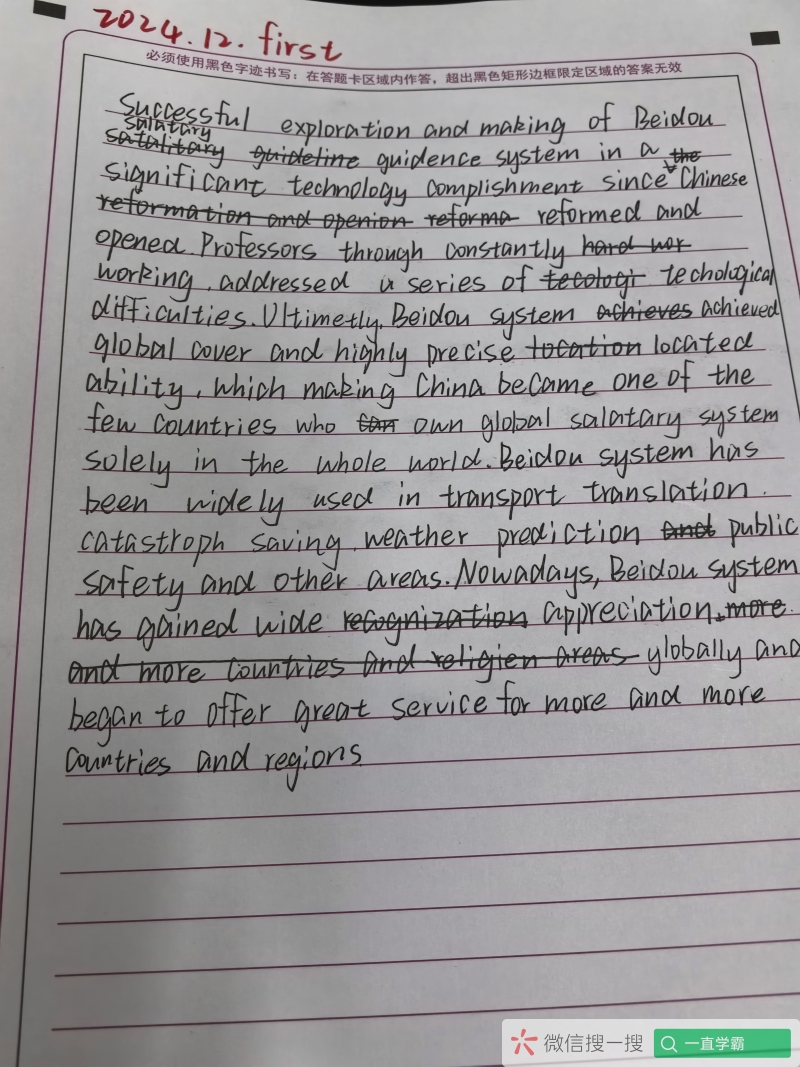 2024.12.first
必须使用黑色字迹书写：在答题卡区域内作答，超出黑色矩形边框限定区域的答案无效
Successful exploration and making of Beidou
salatary
satalitary guideline guidence system in a the
significant technology complishment since Chinese
reformation and openion reforma reformed and
opened. Professors through constantly hard wor
working, addressed a series of tecologi techological
difficulties. Ultimetly, Beidou system achieves achieved
global cover and highly precise location located
ability, which making China became one of the
few countries who can own global salatary system
solely in the whole world. Beidou system has
been widely used in transport translation.
catastroph saving, weather prediction and public
safety and other areas. Nowadays, Beidou system
has gained wide recognization appreciation, more
and more countries and religien areas globally and
began to offer great service for more and more
countries and regions
微信搜一搜
一直学霸